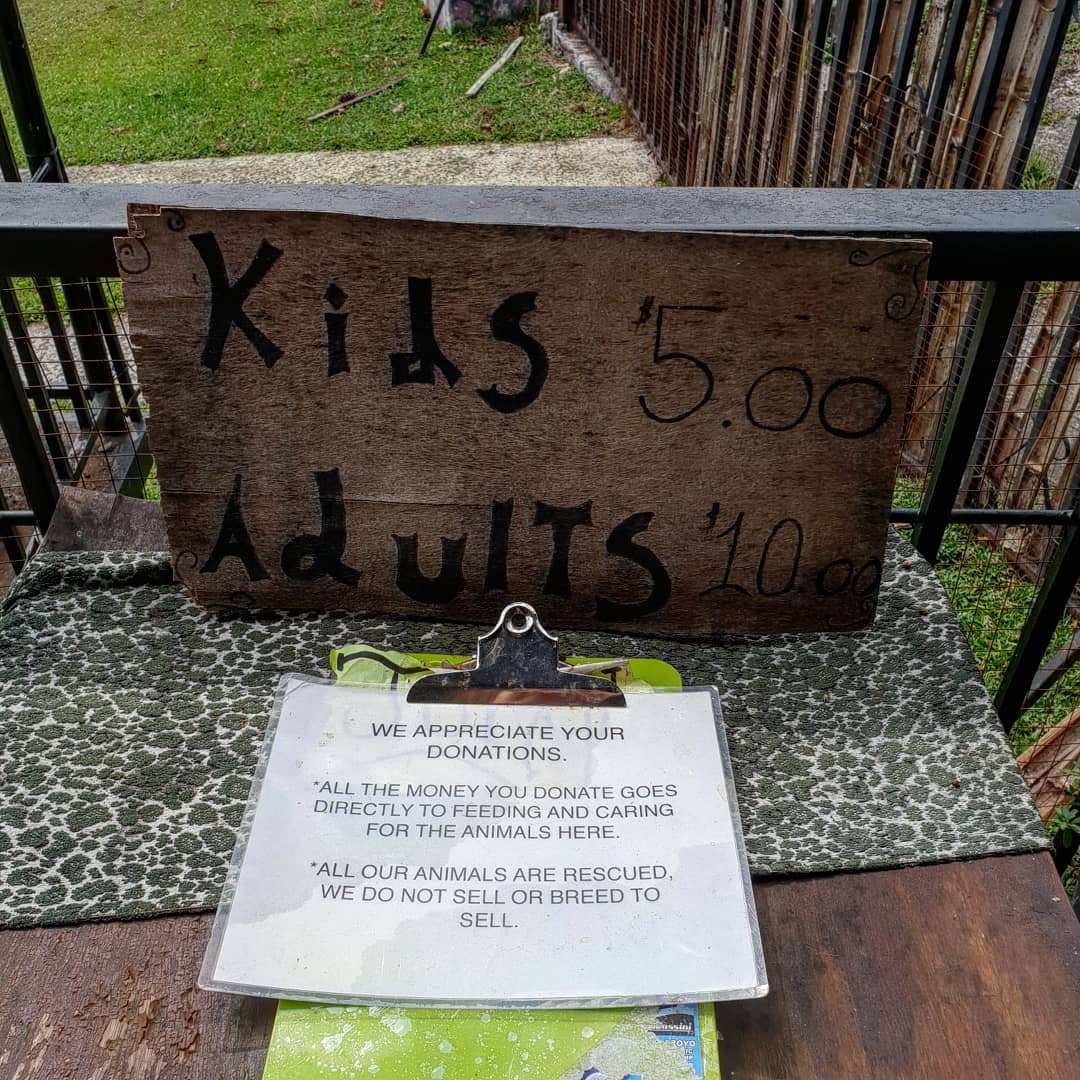 Kids $5.00
Adults $10.00
WE APPRECIATE YOUR
DONATIONS.
*ALL THE MONEY YOU DONATE GOES
DIRECTLY TO FEEDING AND CARING
FOR THE ANIMALS HERE.
*ALL OUR ANIMALS ARE RESCUED,
WE DO NOT SELL OR BREED TO
SELL.